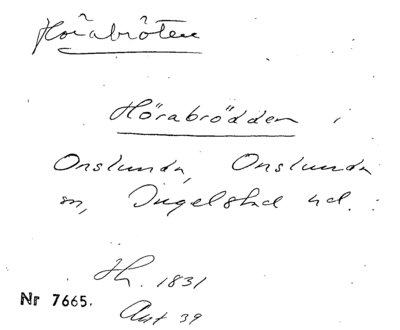 Hörabröten
Hörabrödden i
Onslunda, Onslunda
sn, Ingelstad hd.
Hh. 1831
Nr 7665.
Akt 39